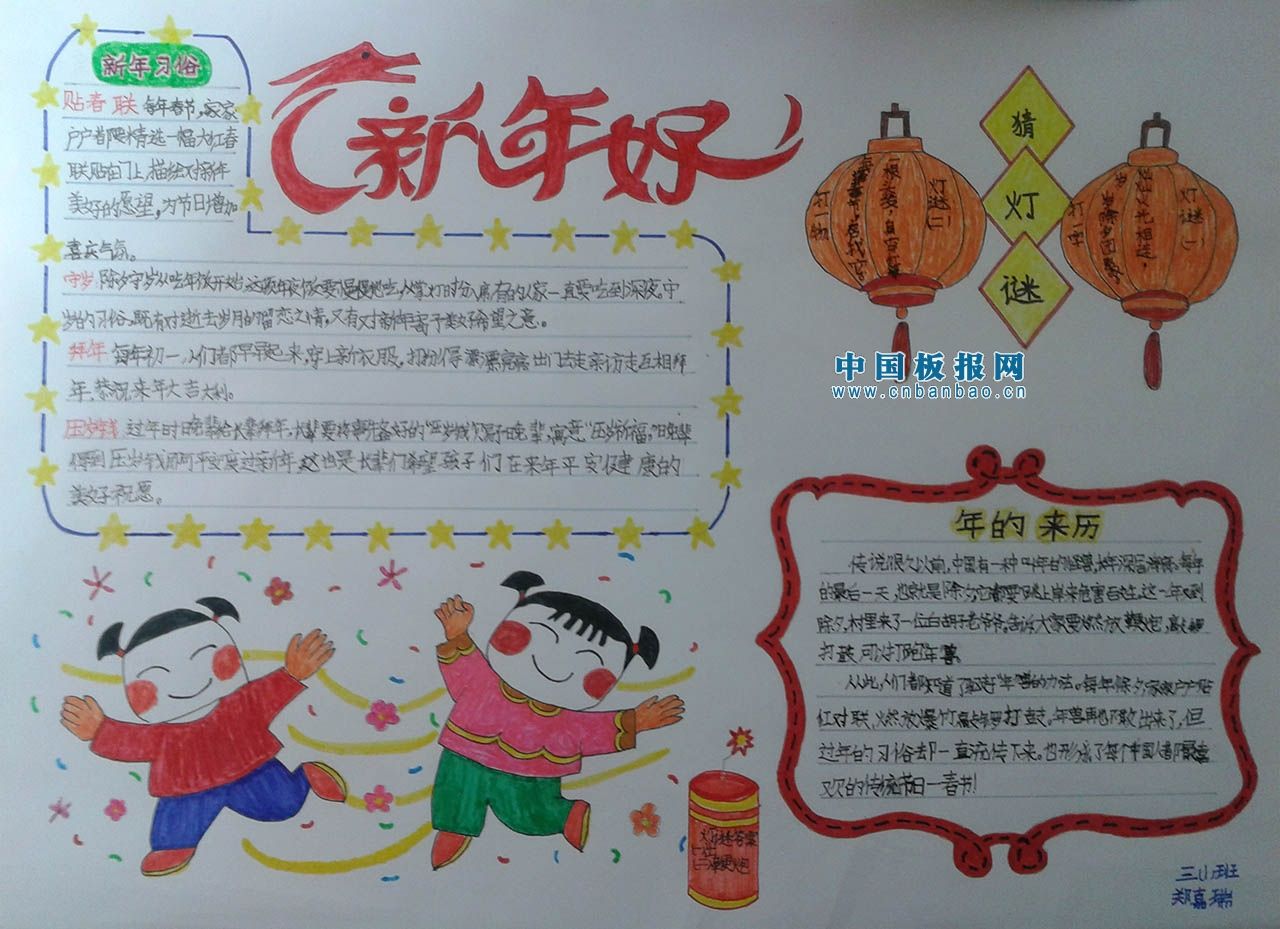 新年习俗
贴春联 每年春节,家家
户户都要精选一幅大红春
联贴在门上,描绘对新年
美好的愿望,为节日增加
喜庆气氛。
守岁 除夕守岁从吃年夜饭开始,这顿年夜饭要慢慢地吃,从掌灯时分入席,有的人家一直要吃到深夜,守
岁的习俗,既有对逝去岁月的留恋之情,又有对新年寄予美好希望之意。
拜年 每年初一,人们都早早起来,穿上新衣服,打扮得漂漂亮亮出门去走亲访走互相拜
年,恭祝来年大吉大利。
压岁钱 过年时晚辈给长辈拜年,长辈要将事先备好的"压岁钱"赐予晚辈,寓意"压岁祈福,"晚辈
得到压岁钱可平安度过新年,这也是长辈们希望孩子们在来年平安健康的
美好祝愿。
新年好
猜
灯
谜
灯谜(一)
打一物
灯谜(一)
灯火相连,
打一字
中国板报网
www.cnbanbao.cn
年的来历
传说很久以前,中国有一种叫年的怪兽,长年深居海底,每年
的最后一天,也就是除夕它都要跳上岸来危害百姓,这一年到
除夕,村里来了一位白胡子老爷爷,告诉大家要燃放鞭炮,敲锣
打鼓可以打跑年兽
从此,人们都知道了赶走"年"兽的方法。每年除夕家家户户贴
红对联,燃放爆竹敲锣打鼓。年兽再也不敢出来了,但
过年的习俗却一直流传下来。也形成了每个中国人都最喜
欢的传统节日—春节!
灯谜答案
鞭炮
三(1)班
郑嘉瑞